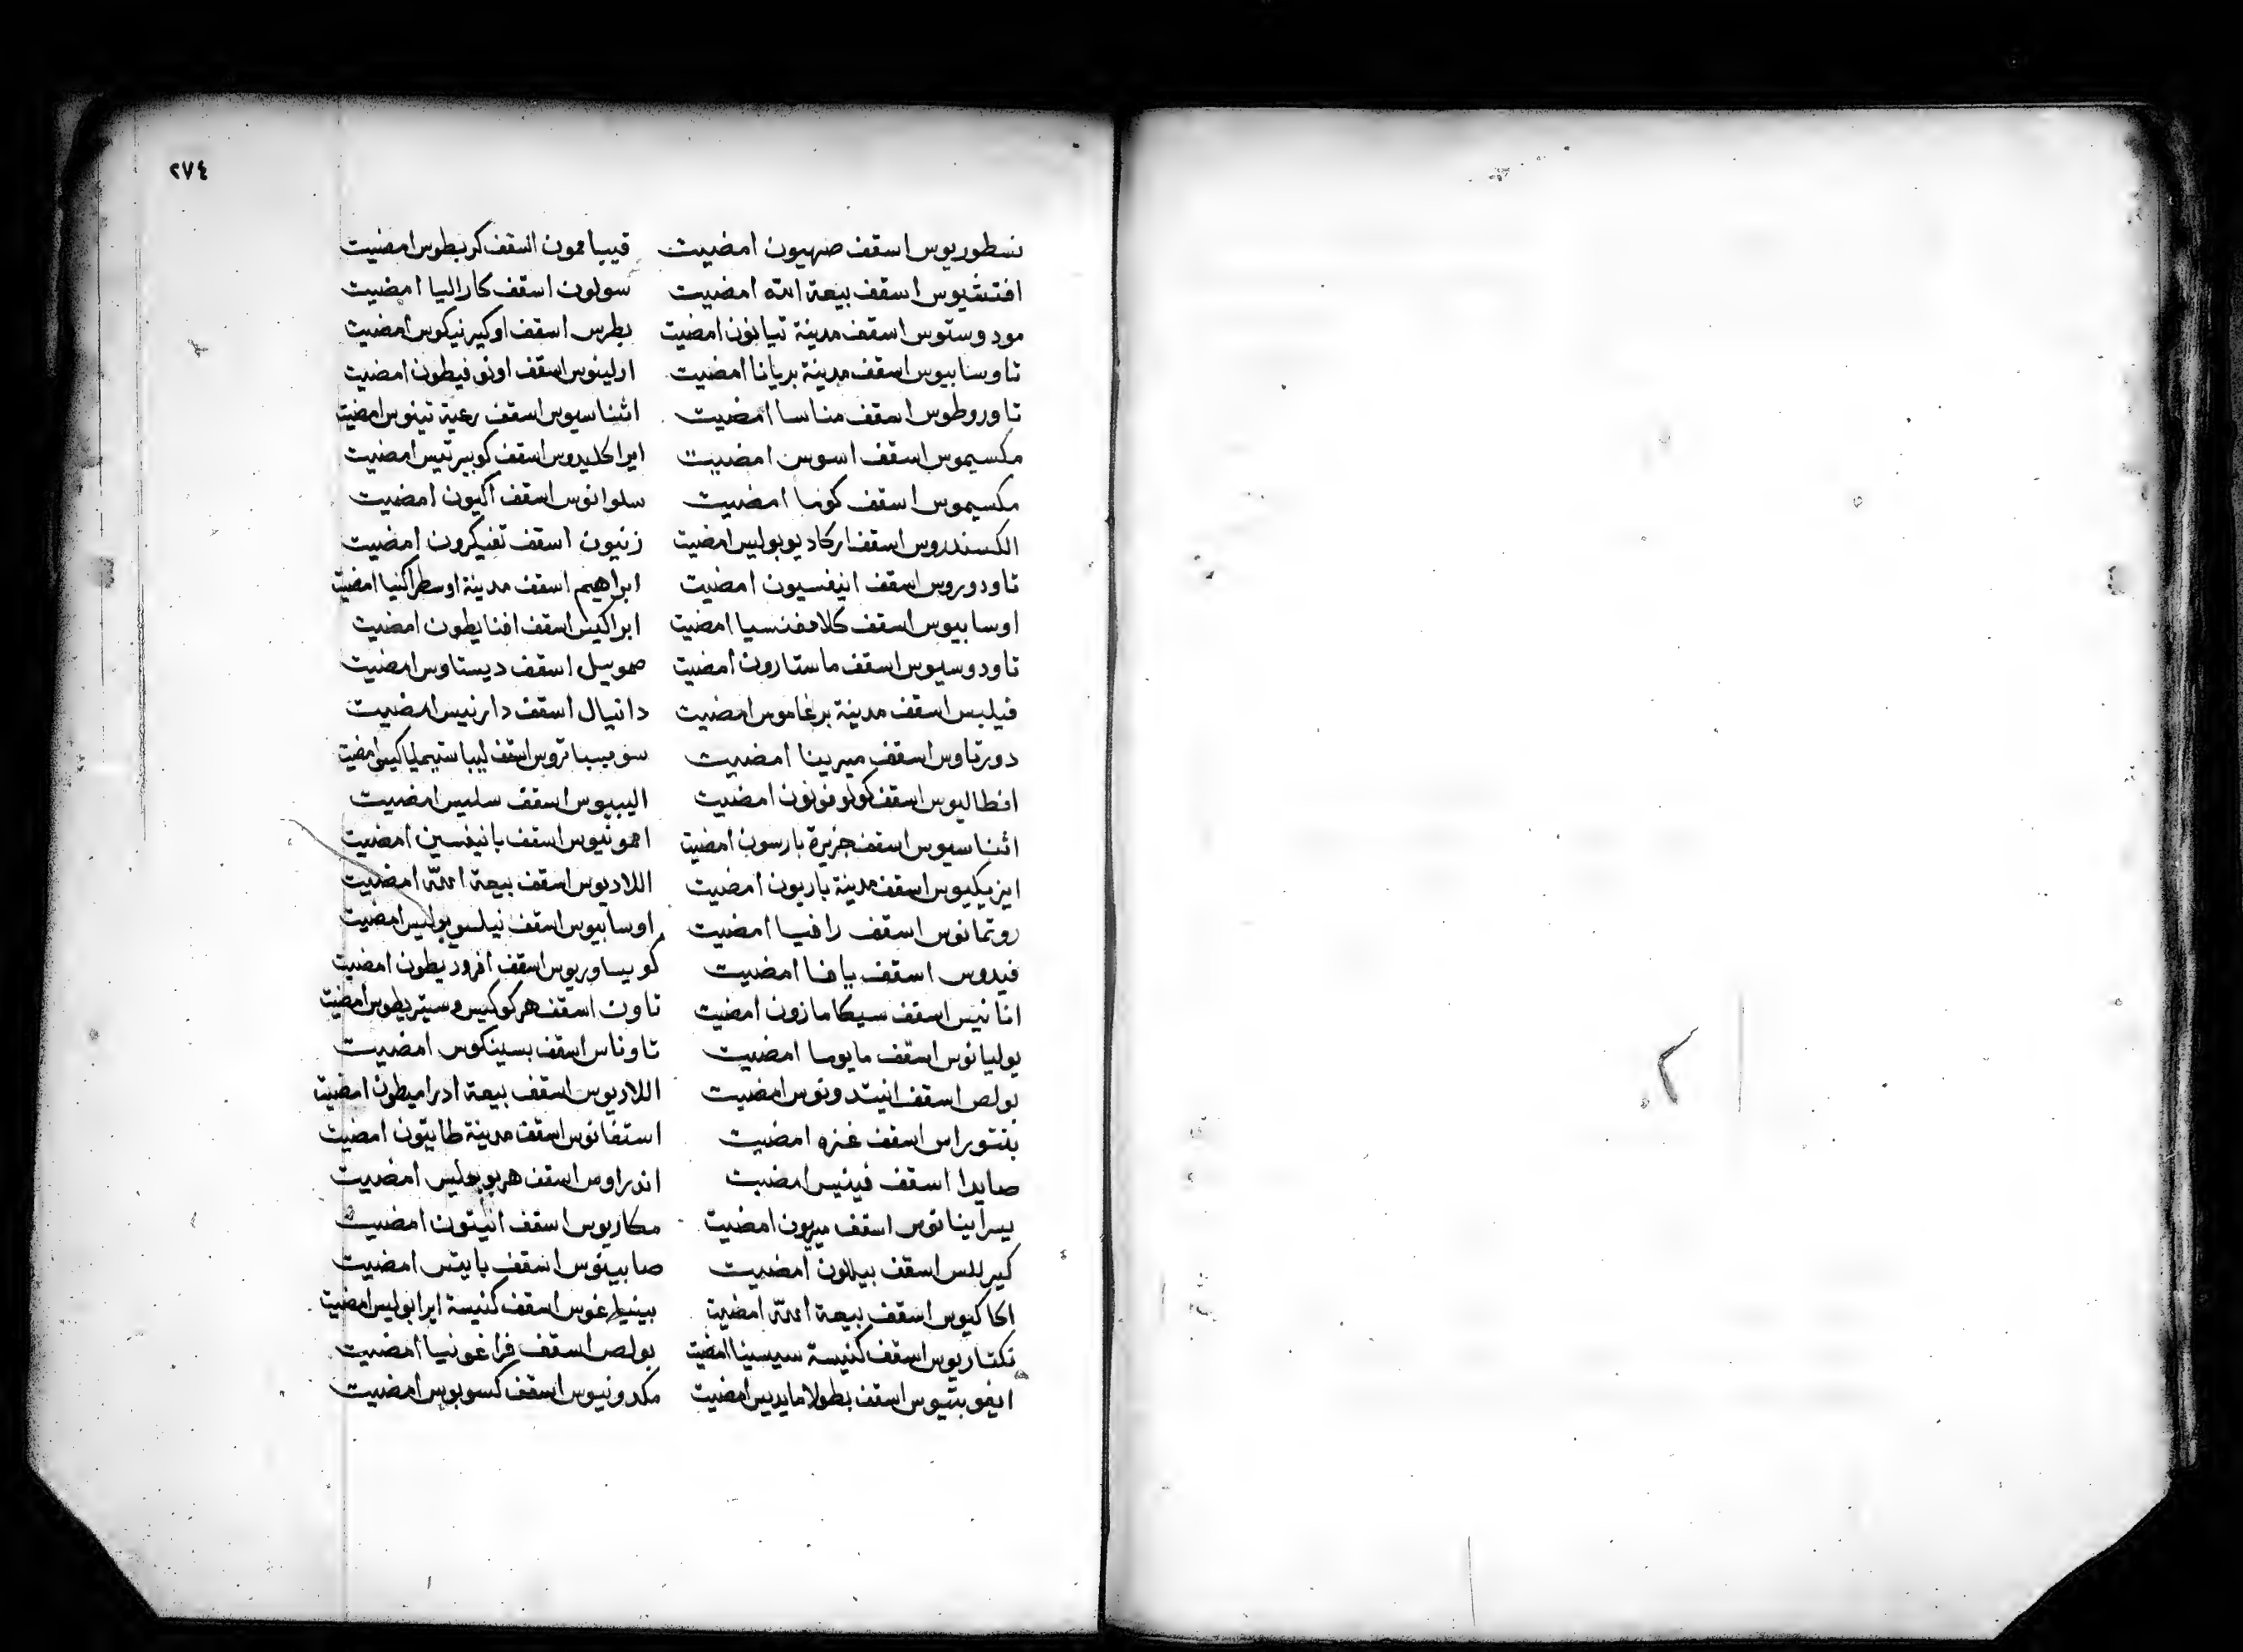 ٢٧٤
نسطوريوس اسقف صهيون امضيت
افتشيوس اسقف بيعة الله امضيت
مودوستوس اسقف مدينة تيانون امضيت
تاوسابيوس اسقف مدينة بريانا امضيت
تاوروطوس اسقف مناسا امضيت
مكسيموس اسقف اسوس امضيت
مكسيموس اسقف كوما امضيت
الكسندروس اسقف اركاديوبوليس امضيت
تاودوروس اسقف انيفسيون امضيت
اوسابيوس اسقف كلامفنسيا امضيت
تاودوسيوس اسقف ماستارون امضيت
فيلبس اسقف مدينة برغاموس امضيت
دورتاوس اسقف ميرينا امضيت
افطاليوس اسقف كولوفونون امضيت
اثناسيوس اسقف جزيرة بارسون امضيت
ايزيكيوس اسقف مدينة باريون امضيت
رومانوس اسقف رافيا امضيت
فيدوس اسقف يافا امضيت
انانيس اسقف سيكامازون امضيت
يوليانوس اسقف مايوما امضيت
بولص اسقف انيتدونوس امضيت
بنتوراس اسقف غزه امضيت
صايدا اسقف فينيس امضيت
يسراينانوس اسقف ميريون امضيت
كيرللس اسقف بيللون امضيت
اكاكيوس اسقف بيعة الله امضيت
نكتاريوس اسقف كنيسة سيسينا امضيت
ايفوبتيوس اسقف بطولامايديس امضيت
قيبامون اسقف كربطوس امضيت
سولون اسقف كاراليا امضيت
بطرس اسقف اوكيرنيكوس امضيت
ارلينوس اسقف اونوفيطون امضيت
اثناسيوس اسقف رعية تينوس امضيت
ايراكليدوس اسقف كوبيرتيس امضيت
سلوانوس اسقف اكيون امضيت
زنيون اسقف تفنيكرون امضيت
ابراهيم اسقف مدينة اوسطراكنيا امضيت
ابراكيس اسقف افنايطون امضيت
صموييل اسقف ديستاوس امضيت
دانيال اسقف دارنيس امضيت
سوسيباتروس اسقف امضيت
اليبيوس اسقف سليس امضيت
امونيوس اسقف بانيفسين امضيت
اللاديوس اسقف بيعة الله امضيت
اوسابيوس اسقف نيلسوبوليس امضيت
كويساوريوس اسقف افروديطون امضيت
تاون اسقف امضيت
تاوناس اسقف بسينكوس امضيت
اللاديوس اسقف بيعة ادراميطون امضيت
استفانوس اسقف مدينة طايتون امضيت
اندراوس اسقف هربوبوليس امضيت
مكاريوس اسقف انيتون امضيت
صابينوس اسقف بايتس امضيت
بينيلاغوس اسقف كنيسة ايرابوليس امضيت
بولص اسقف فراغونيا امضيت
مكدونيوس اسقف كسوبوس امضيت